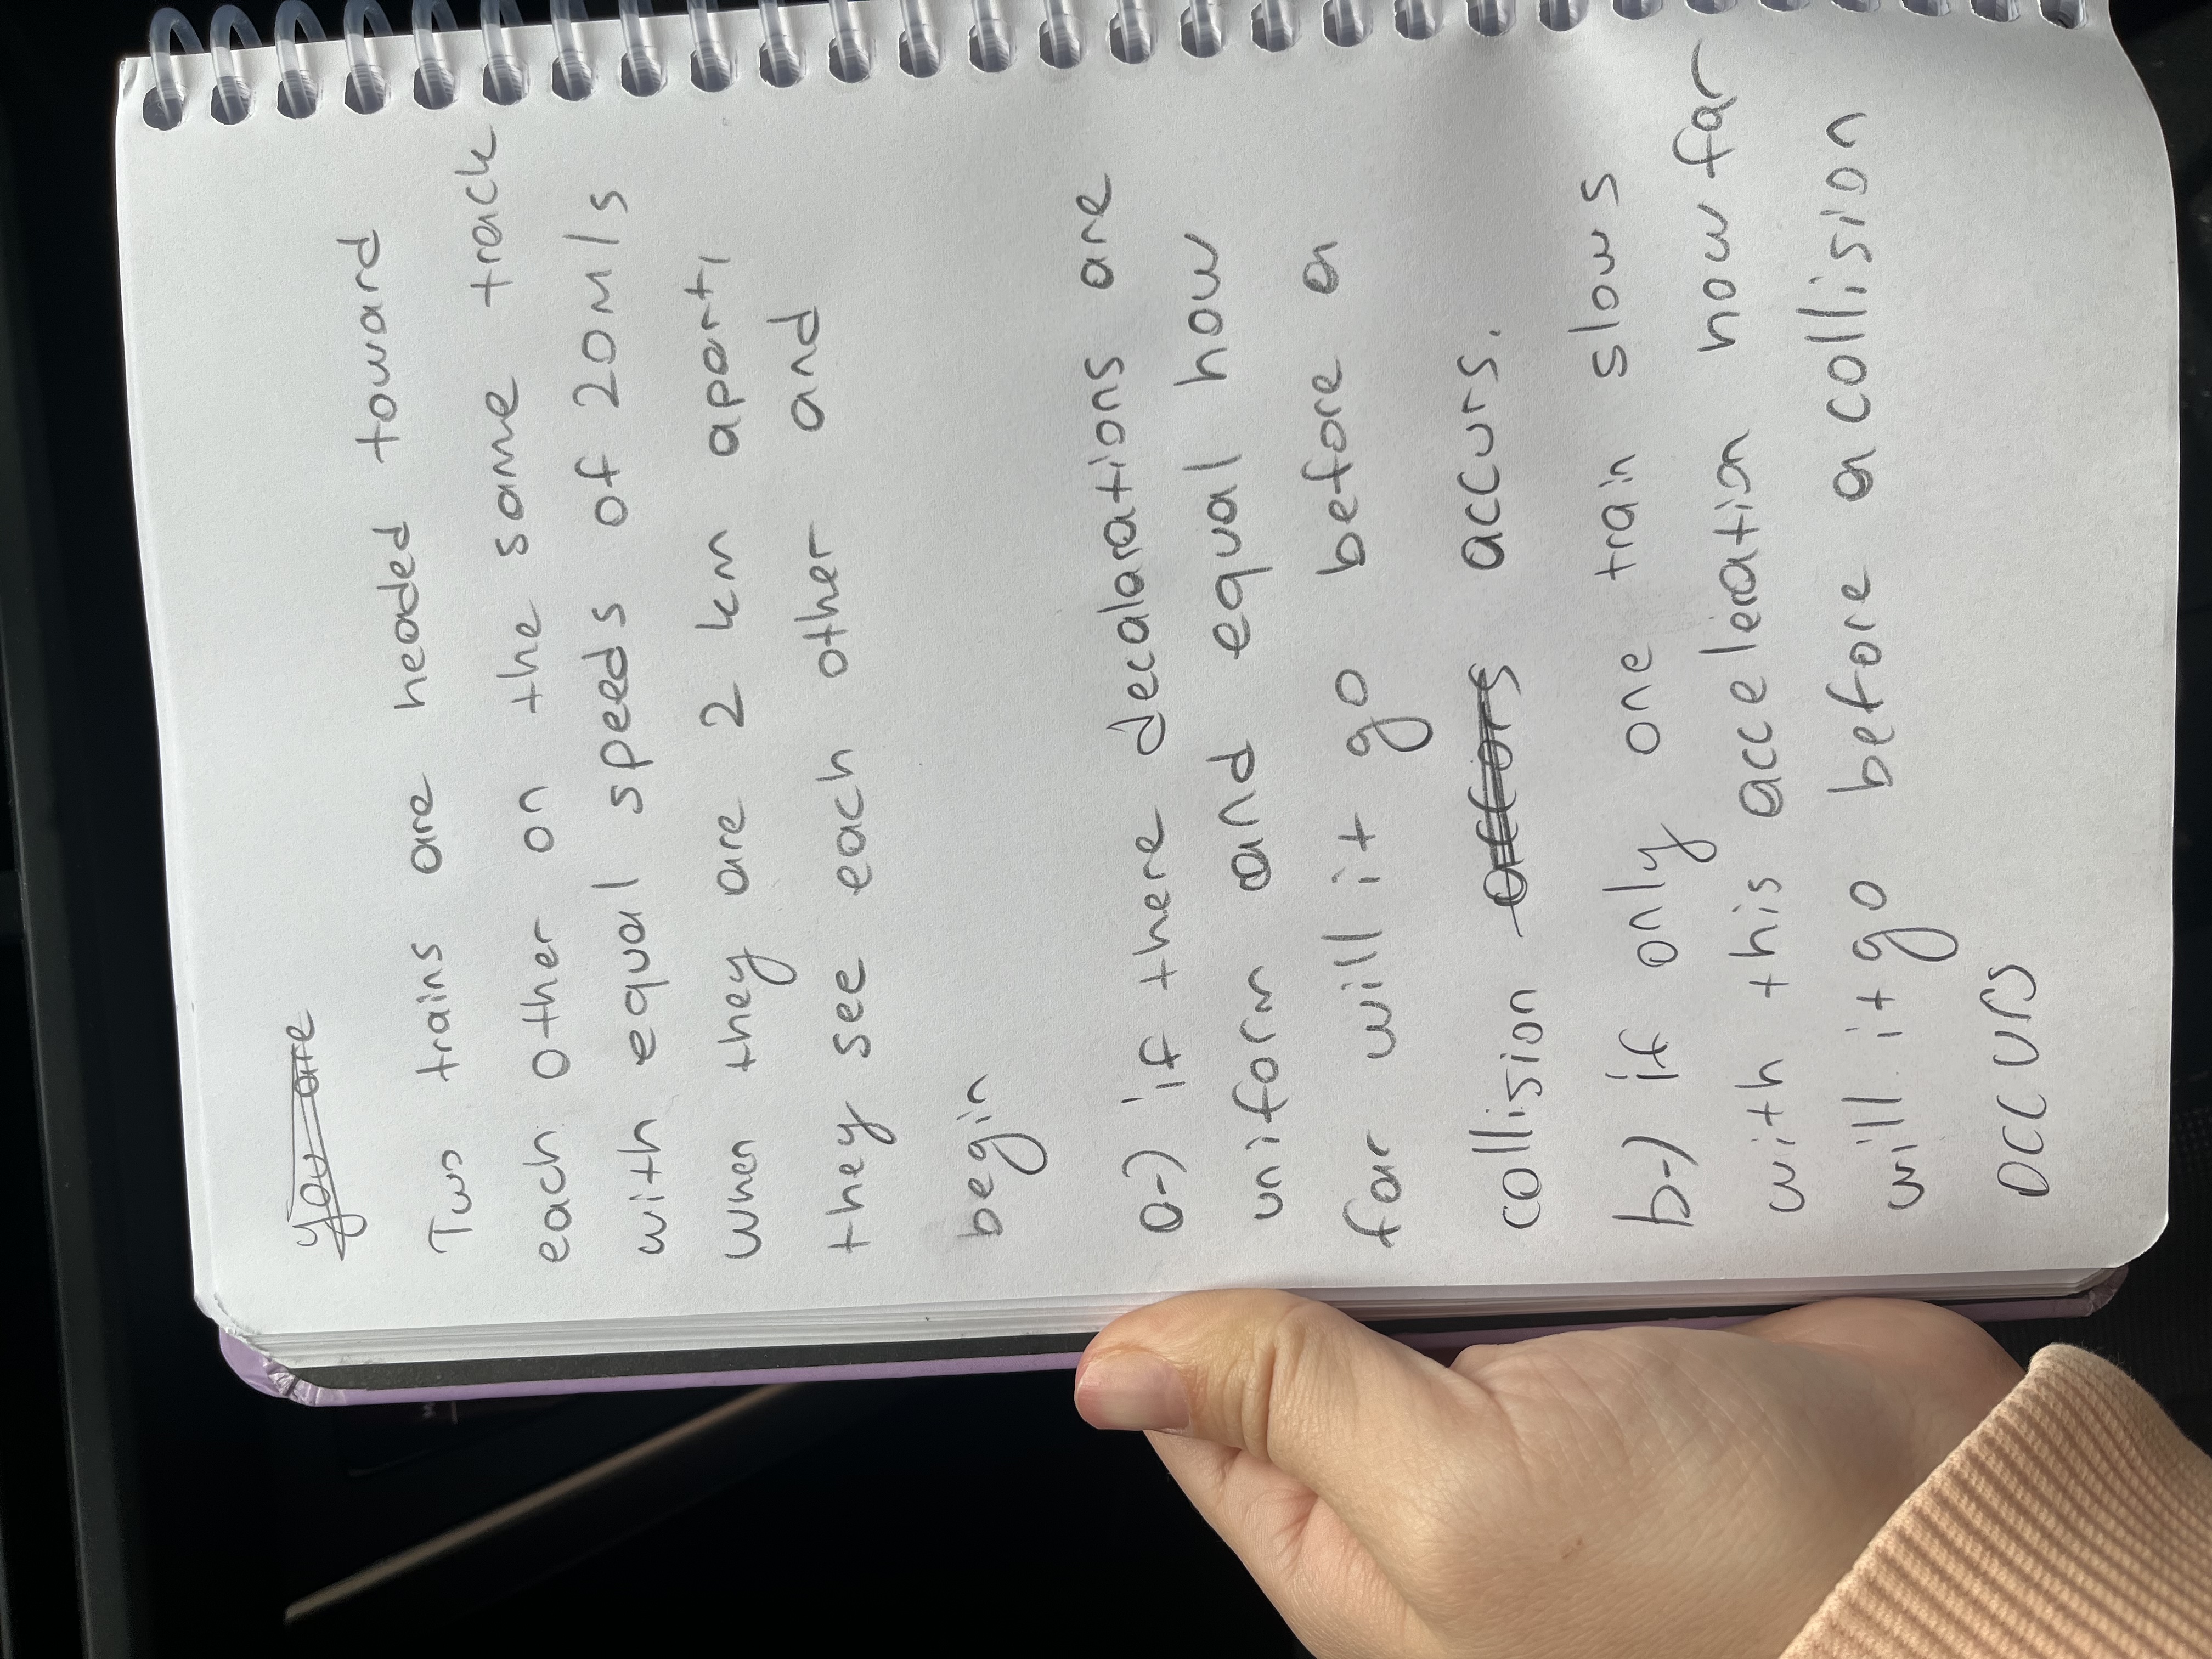 Two trains are headed toward
each other on the same track
with equal speeds of 20m/s
when they are 2 km apart,
they see each other and
begin
a-) if there decalarations are
uniform and equal how
far will it go before a
collision accurs.
b-) if only one train slows
with this acceleration how far
will it go before a collision
occurs